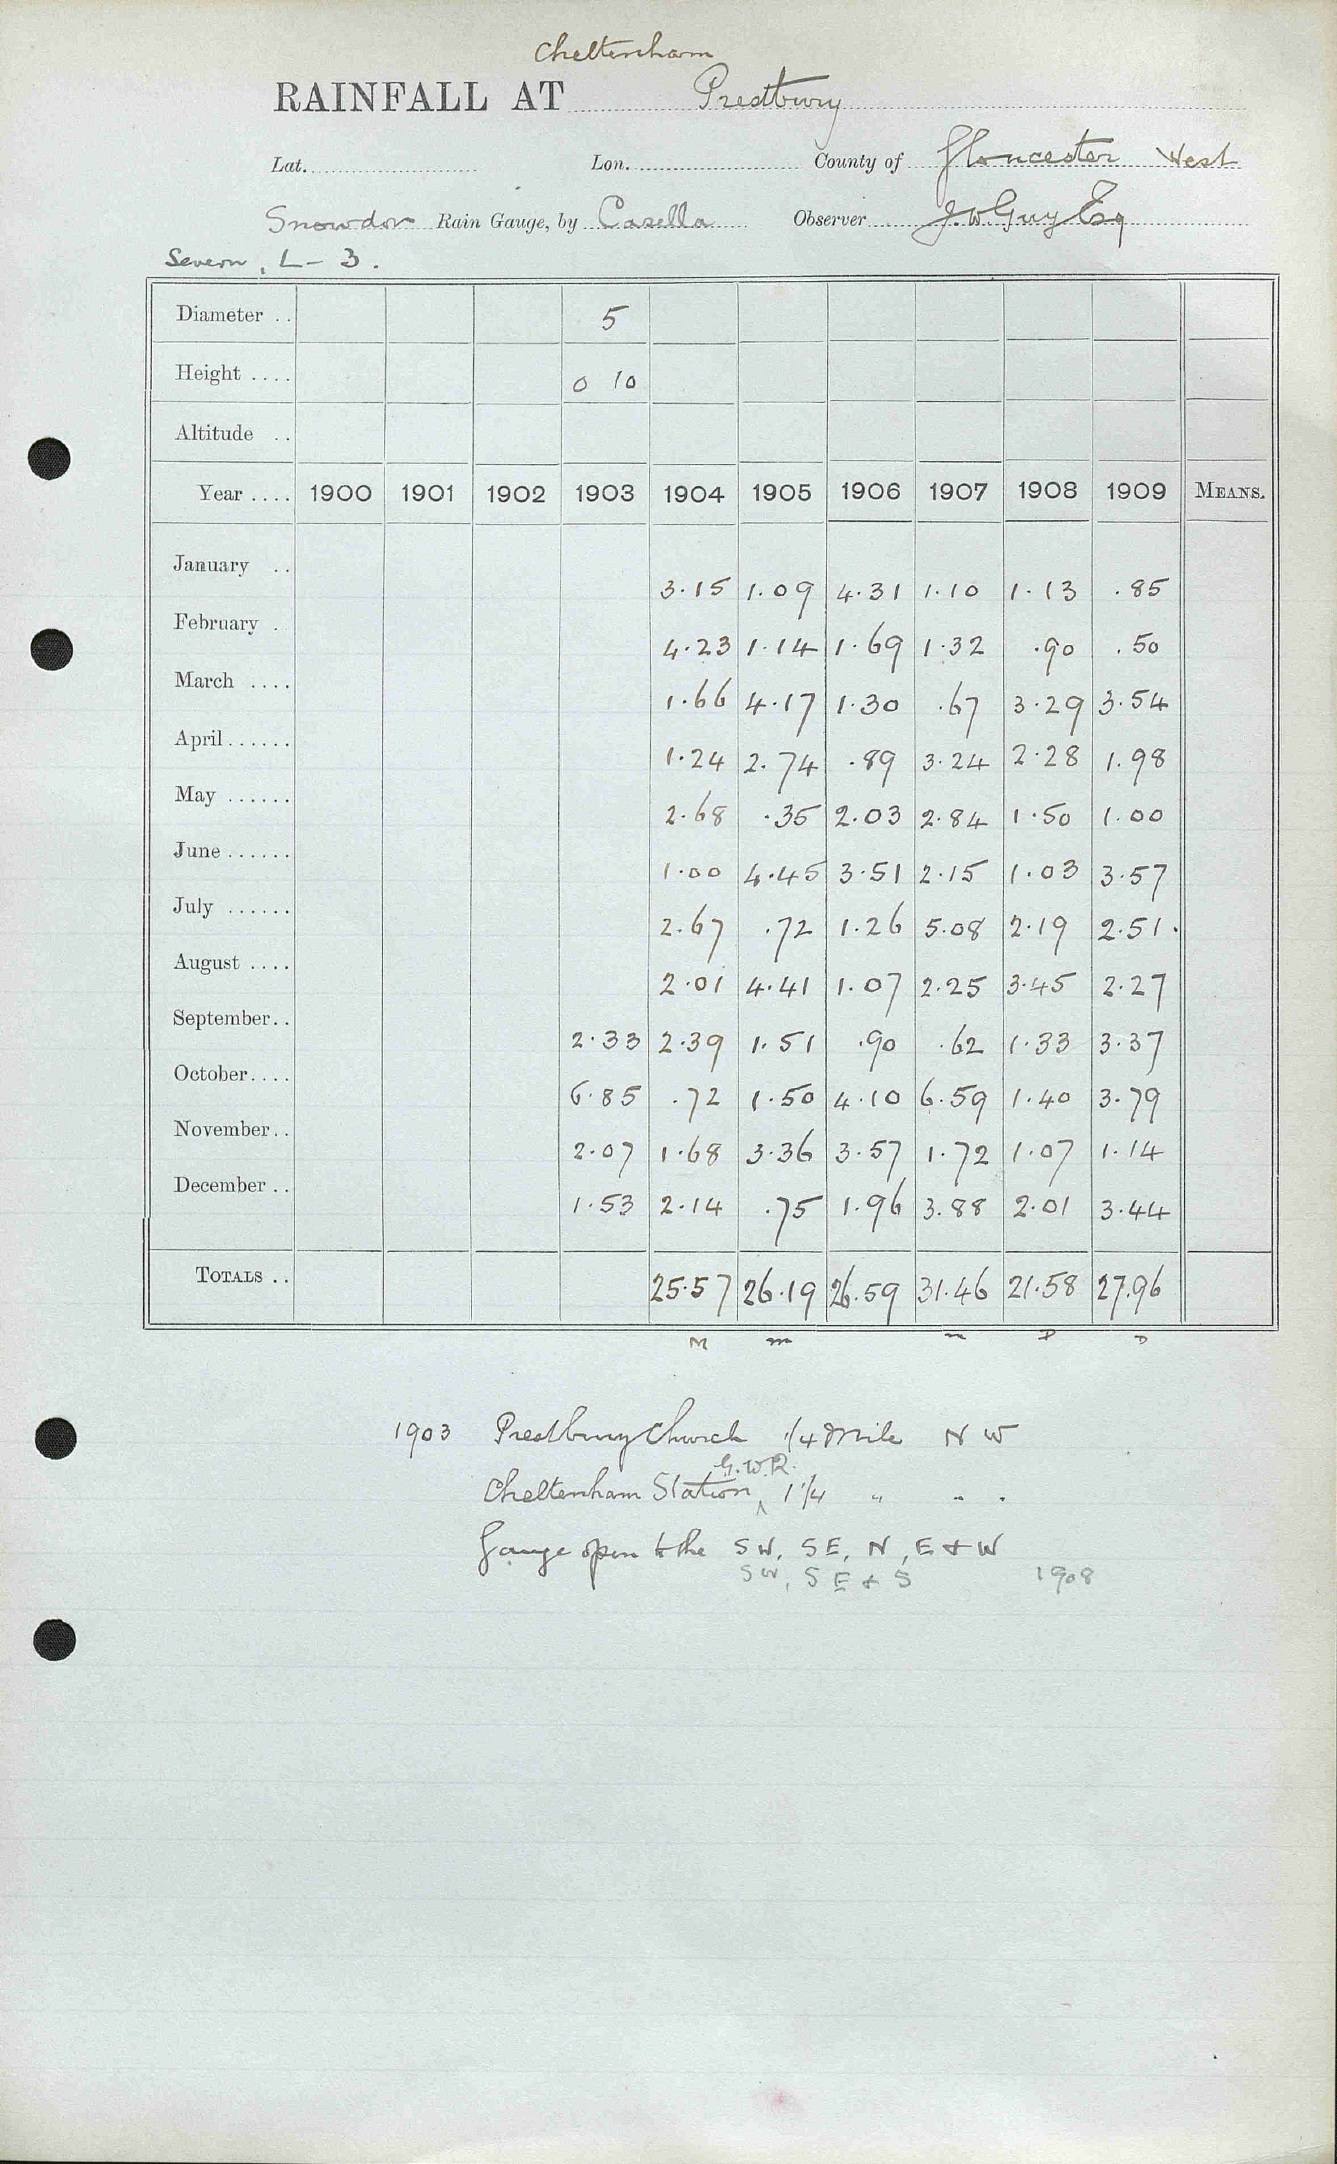 Cheltenham
RAINFALL AT Prestbury
Lat. Lon. County of Gloucester West
Snowdon Rain Gauge, by Casella Observer J. W. Guy Esq
Severn, L - 3.
Diameter .. 5
Height .... 0 10
Altitude ..
Year .... 1900 1901 1902 1903 1904 1905 1906 1907 1908 1909 MEANS.
January .. 3.15 1.09 4.31 1.10 1.13 .85
February . 4.23 1.14 1.69 1.32 .90 .50
March .... 1.66 4.17 1.30 .67 3.29 3.54
April...... 1.24 2.74 .89 3.24 2.28 1.98
May ...... 2.68 .35 2.03 2.84 1.50 1.00
June ...... 1.00 4.45 3.51 2.15 1.03 3.57
July ...... 2.67 .72 1.26 5.08 2.19 2.51.
August .... 2.01 4.41 1.07 2.25 3.45 2.27
September.. 2.33 2.39 1.51 .90 .62 1.33 3.37
October.... 6.85 .72 1.50 4.10 6.59 1.40 3.79
November.. 2.07 1.68 3.36 3.57 1.72 1.07 1.14
December .. 1.53 2.14 .75 1.96 3.88 2.01 3.44
TOTALS .. 25.57 26.19 26.59 31.46 21.58 27.96
M m n D D
1903 Prestbury Church 1/4 Mile N W
G.W.R.
Cheltenham Station ^ 1 1/4 " " .
Gauge open to the SW, SE, N, E & W
SW, SE & S 1908